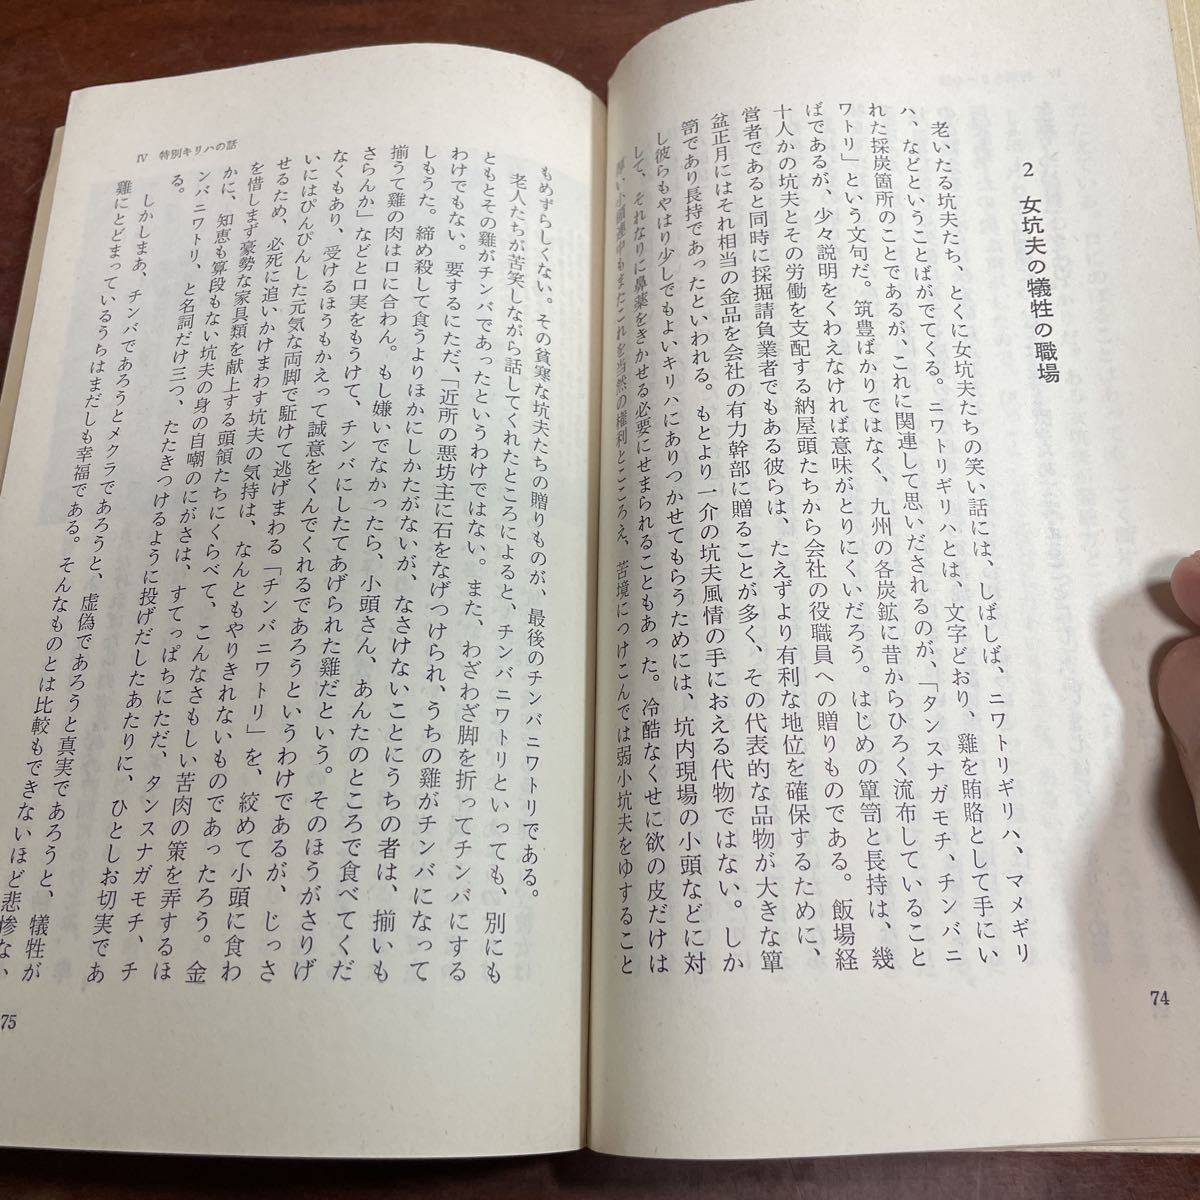 2 女坑夫の犠牲の職場
老いたる坑夫たち、とくに女坑夫たちの笑い話には、しばしば、ニワトリギリハ、マメギリ
ハ、などということばがでてくる。ニワトリギリハとは、文字どおり、雞を賄賂として手にい
れた採炭箇所のことであるが、これに関連して思いだされるのが、「タンスナガモチ、チンバニ
ワトリ」という文句だ。筑豊ばかりではなく、九州の各炭鉱に昔からひろく流布していること
ばであるが、少々説明をくわえなければ意味がとりにくいだろう。はじめの簞笥と長持は、幾
十人かの坑夫とその労働を支配する納屋頭たちから会社の役職員への贈りものである。飯場経
営者であると同時に採掘請負業者でもある彼らは、たえずより有利な地位を確保するために、
盆正月にはそれ相当の金品を会社の有力幹部に贈ることが多く、その代表的な品物が大きな簞
笥であり長持であったといわれる。もとより一介の坑夫風情の手におえる代物ではない。しか
し彼らもやはり少しでもよいキリハにありつかせてもらうためには、坑内現場の小頭などに対
して、それなりに鼻薬をきかせる必要にせまられることもあった。冷酷なくせに欲の皮だけは
厚い小頭連中もまたこれを当然の権利とこころえ、苦境につけこんでは弱小坑夫をゆすること
74
Ⅳ 特別キリハの話
もめずらしくない。その貧寒な坑夫たちの贈りものが、最後のチンバニワトリである。
老人たちが苦笑しながら話してくれたところによると、チンバニワトリといっても、別にも
ともとその雞がチンバであったというわけではない。また、わざわざ脚を折ってチンバにする
わけでもない。要するにただ、「近所の悪坊主に石をなげつけられ、うちの雞がチンバになって
しもうた。締め殺して食うよりほかにしかたがないが、なさけないことにうちの者は、揃いも
揃うて雞の肉は口に合わん。もし嫌いでなかったら、小頭さん、あんたのところで食べてくだ
さらんか」などと口実をもうけて、チンバにしたてあげられた雞だという。そのほうがさりげ
なくもあり、受けるほうもかえって誠意をくんでくれるであろうというわけであるが、じっさ
いにはぴんぴんした元気な両脚で駈けて逃げまわる「チンバニワトリ」を、絞めて小頭に食わ
せるため、必死に追いかけまわす坑夫の気持は、なんともやりきれないものであったろう。金
を惜しまず豪勢な家具類を献上する頭領たちにくらべて、こんなさもしい苦肉の策を弄するほ
かに、知恵も算段もない坑夫の身の自嘲のにがさは、すてっぱちにただ、タンスナガモチ、チ
ンバニワトリ、と名詞だけ三つ、たたきつけるように投げだしたあたりに、ひとしお切実であ
る。
しかしまあ、チンバであろうとメクラであろうと、虚偽であろうと真実であろうと、犠牲が
雞にとどまっているうちはまだしも幸福である。そんなものとは比較もできないほど悲惨な、
75